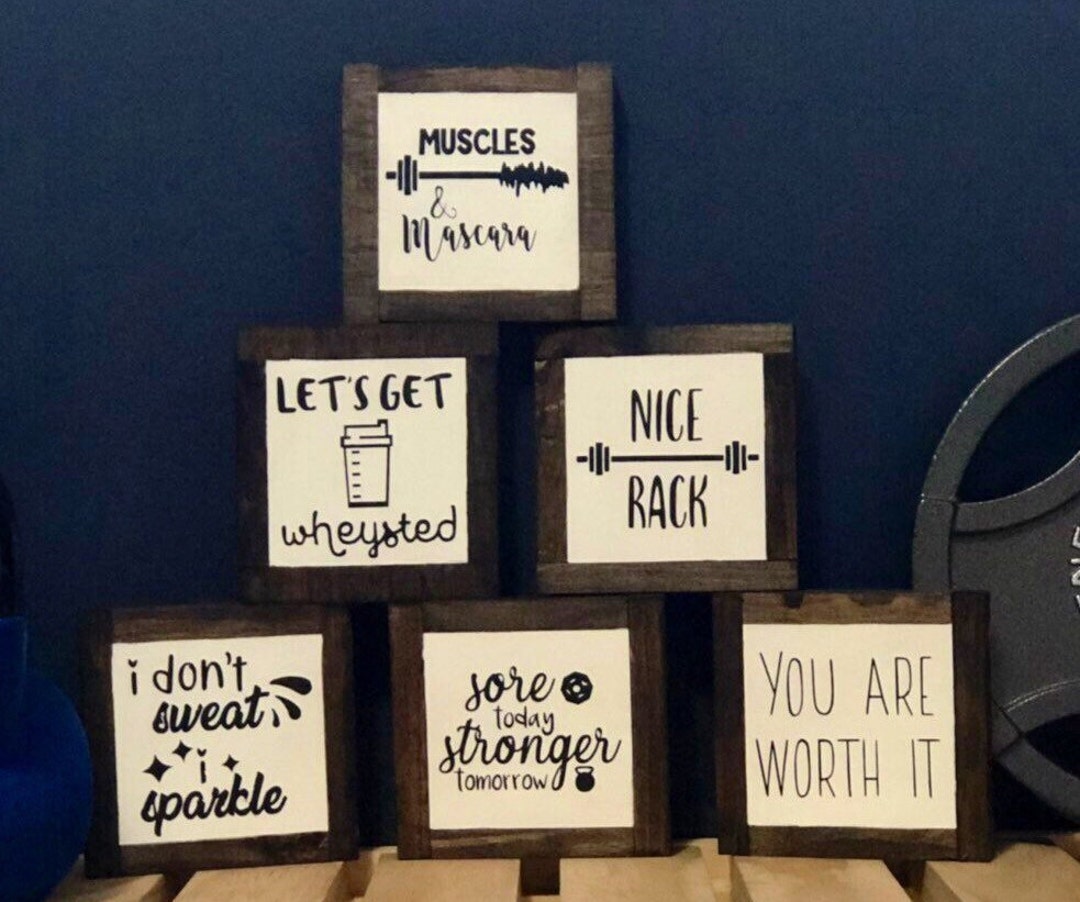 MUSCLES
&
Mascara
LET'S GET
wheysted
NICE
RACK
i don't
sweat
i
sparkle
sore
today
stronger
tomorrow
YOU ARE
WORTH IT